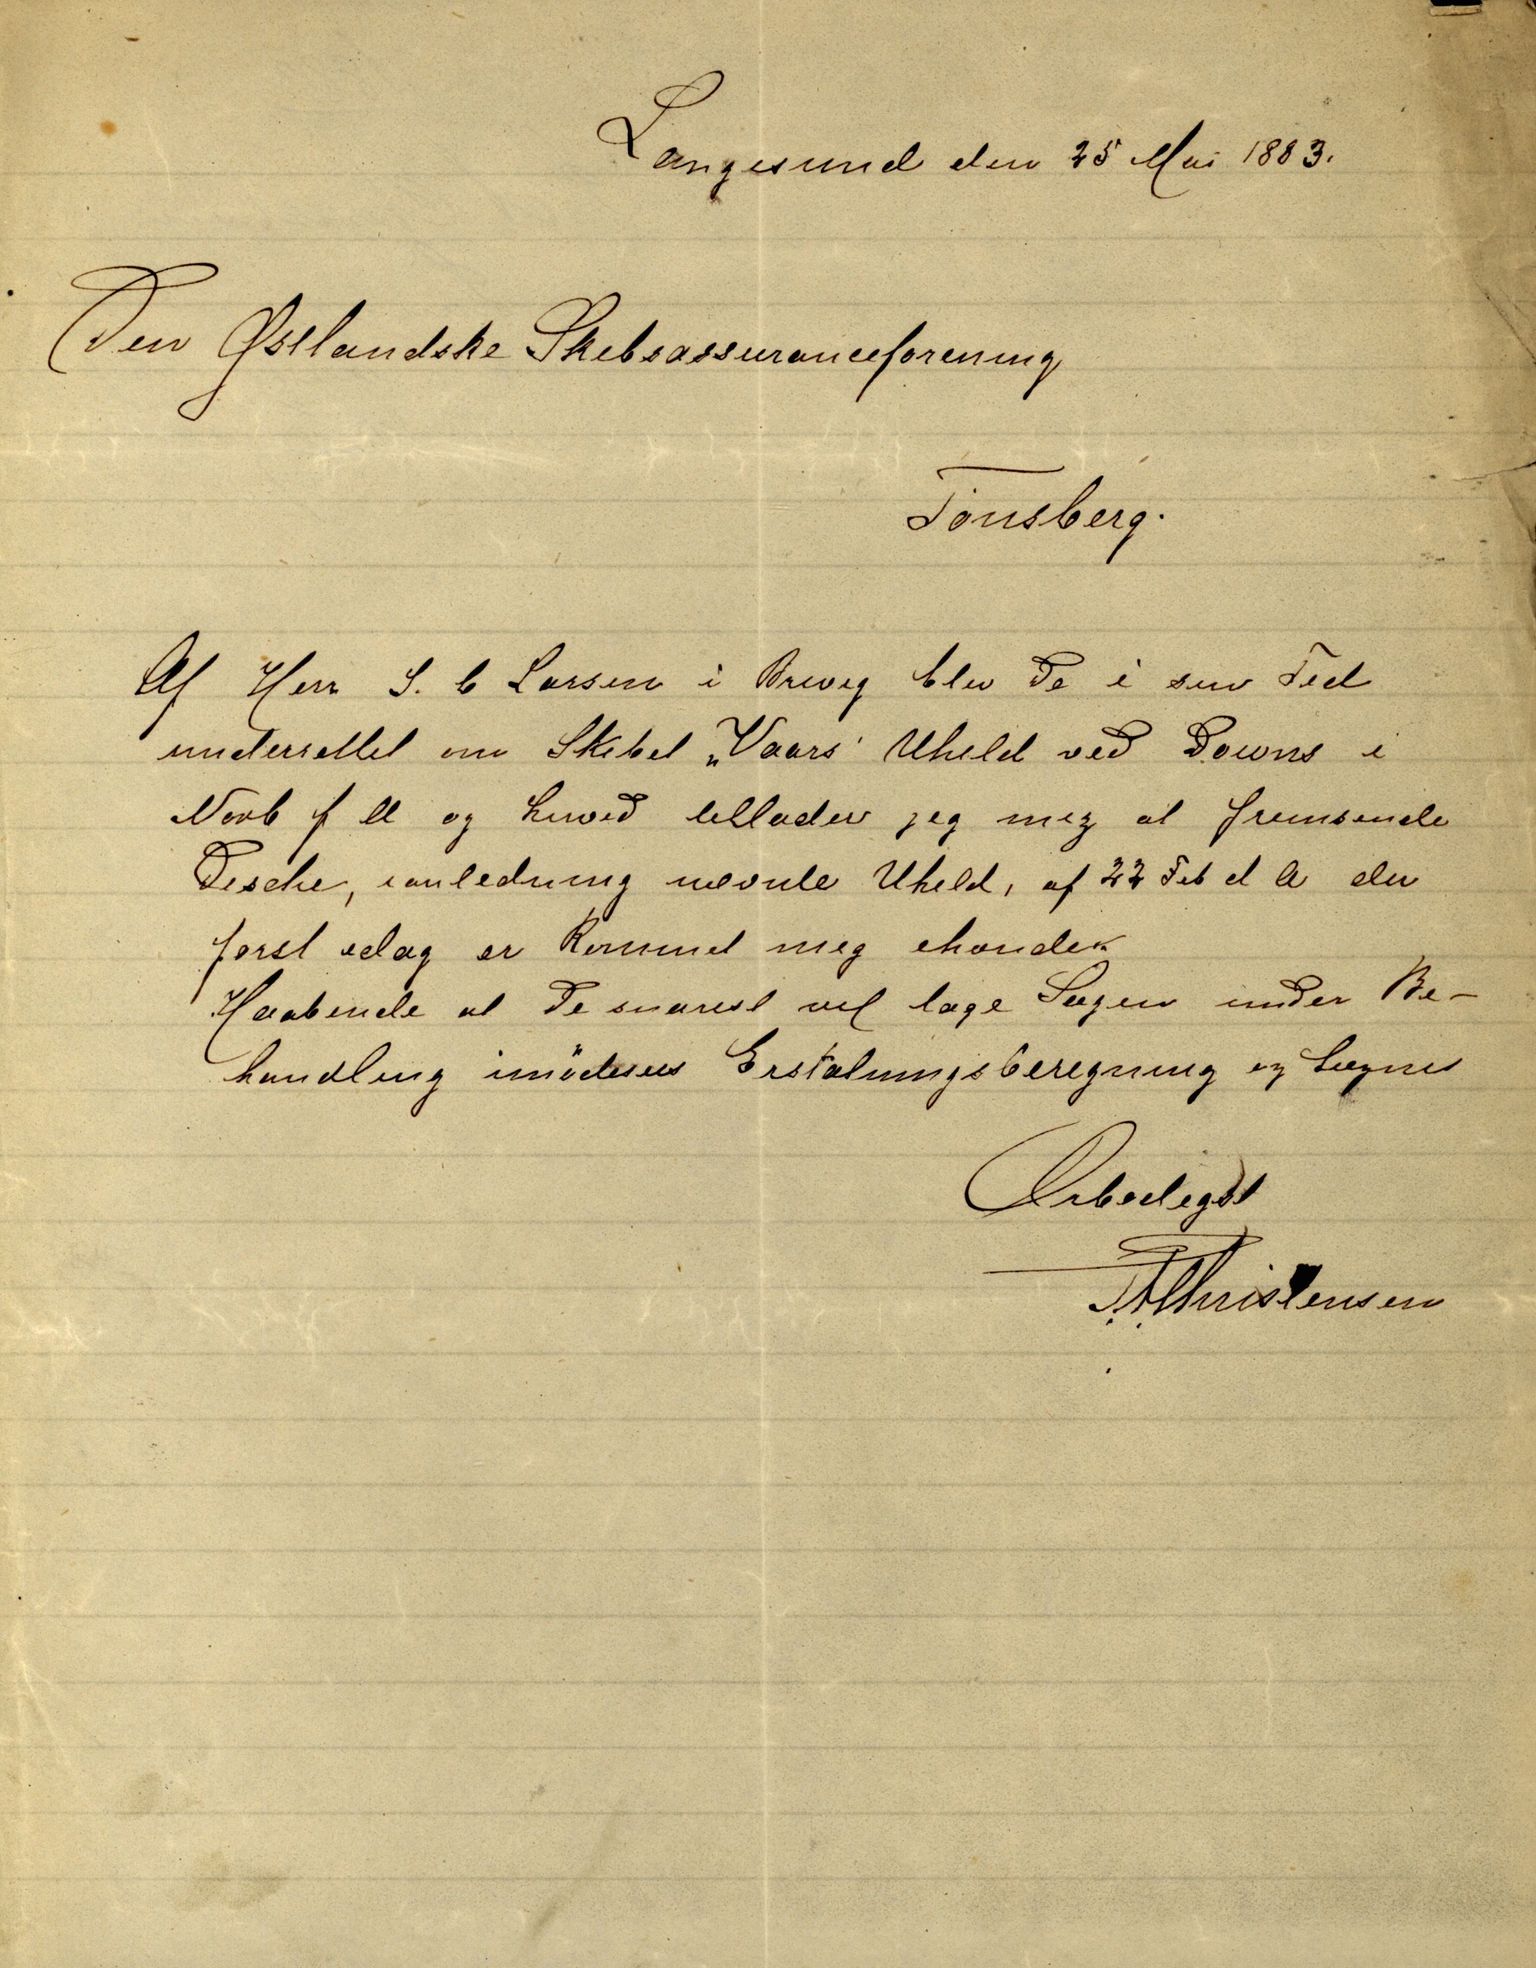 Langesund den 25 Mai 1883.
Den Østlandske Skibsassuranceforening
Tønsberg.
Af Herr S. C Larsen i Brevig blev De i sin Tid
underrettet om Skibet „Vaars" Uheld ved Downs i
Novb f A og herved tillader jeg mig at fremsende
Desche, ianledning nævnte Uheld, af 22 Feb d A der
først idag er kommet mig ihænde.
Haabende at De snarest vil tage Sagen under Be-
handling imødesees Erstatningsberegning og tegnes
Ærbødigst
T. A. Christensen